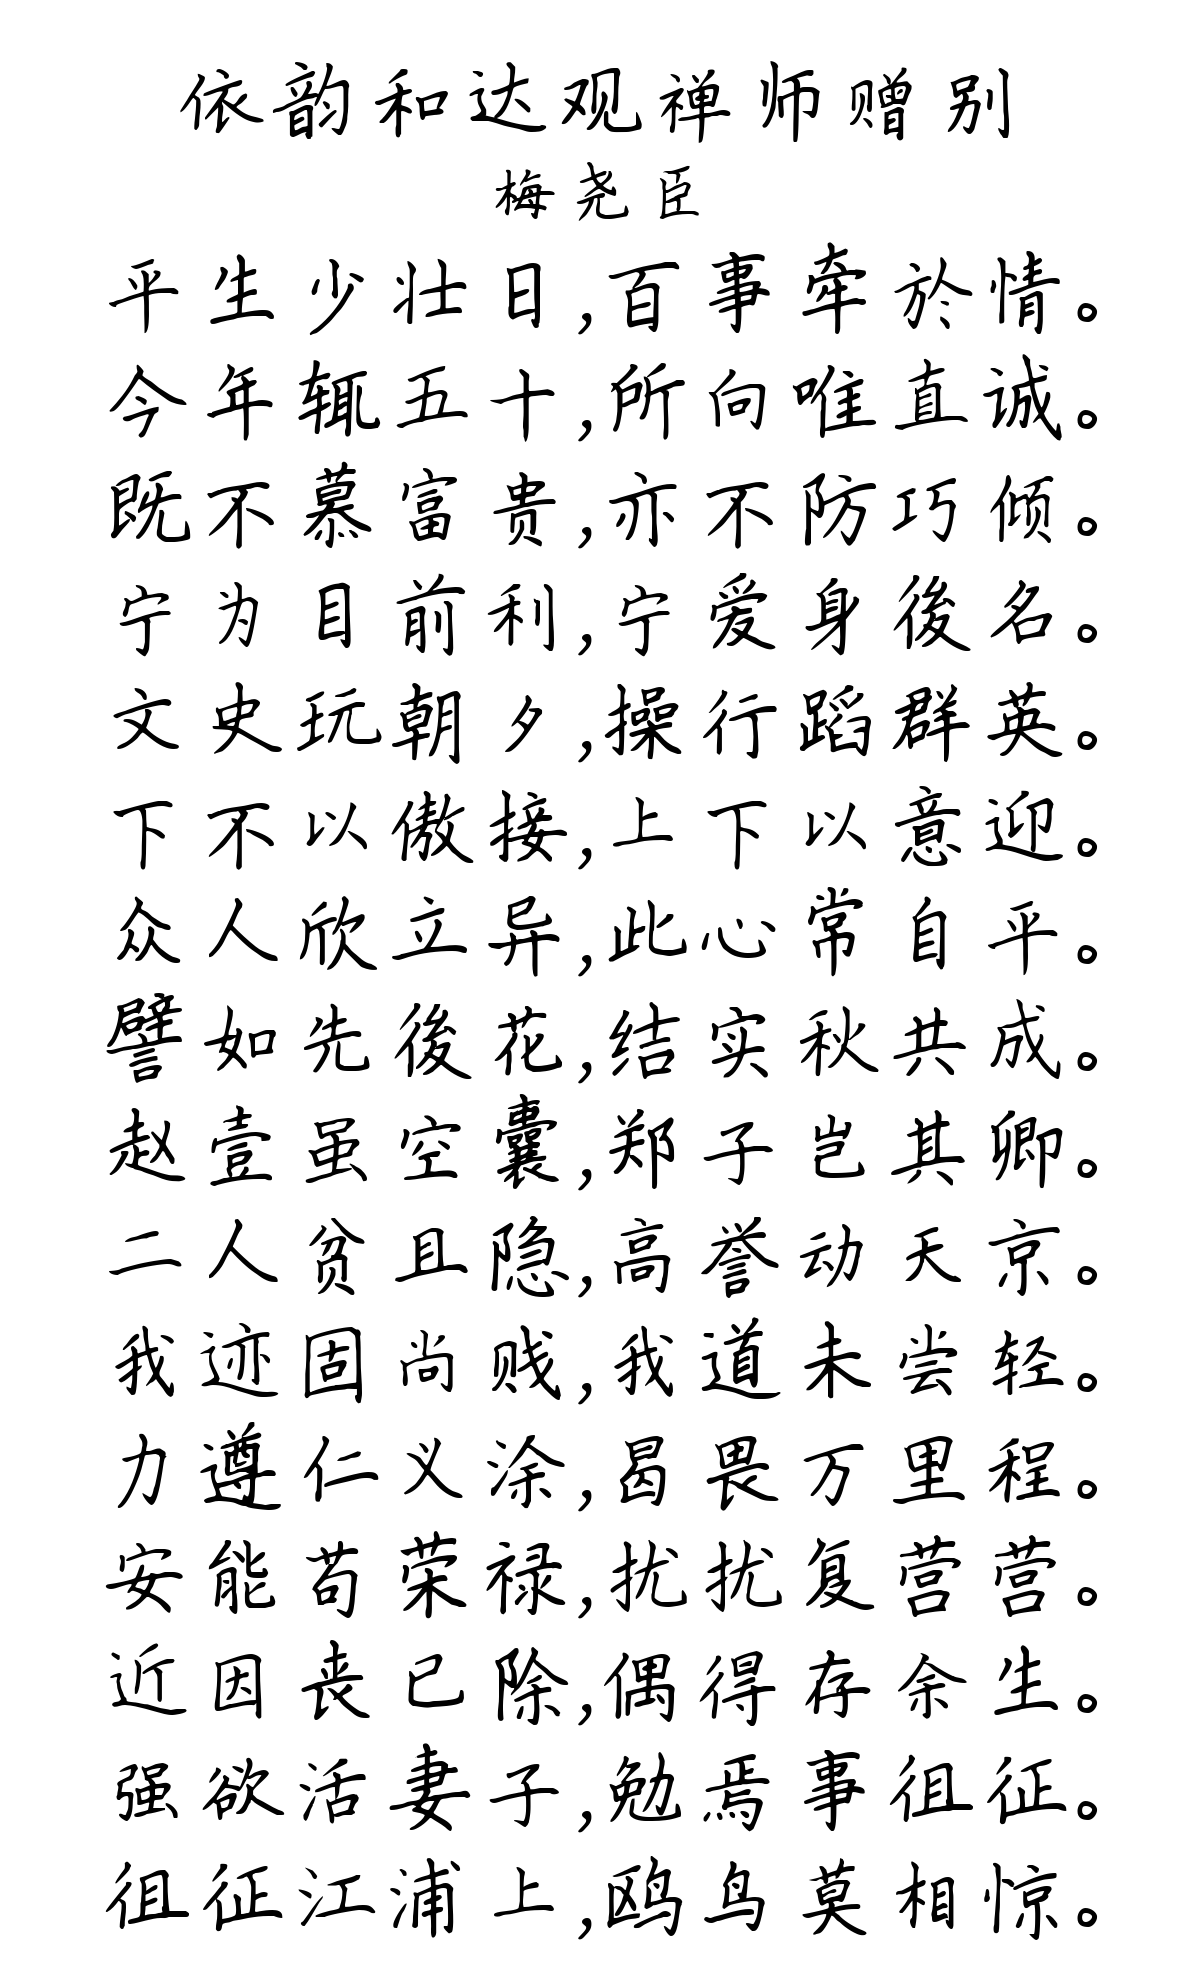 依韵和达观禅师赠别
梅尧臣
平生少壮日,百事牵於情。
今年辄五十,所向唯直诚。
既不慕富贵,亦不防巧倾。
宁为目前利,宁爱身後名。
文史玩朝夕,操行蹈群英。
下不以傲接,上下以意迎。
众人欣立异,此心常自平。
譬如先後花,结实秋共成。
赵壹虽空囊,郑子岂其卿。
二人贫且隐,高誉动天京。
我迹固尚贱,我道未尝轻。
力遵仁义涂,曷畏万里程。
安能苟荣禄,扰扰复营营。
近因丧已除,偶得存余生。
强欲活妻子,勉焉事徂征。
徂征江浦上,鸥鸟莫相惊。